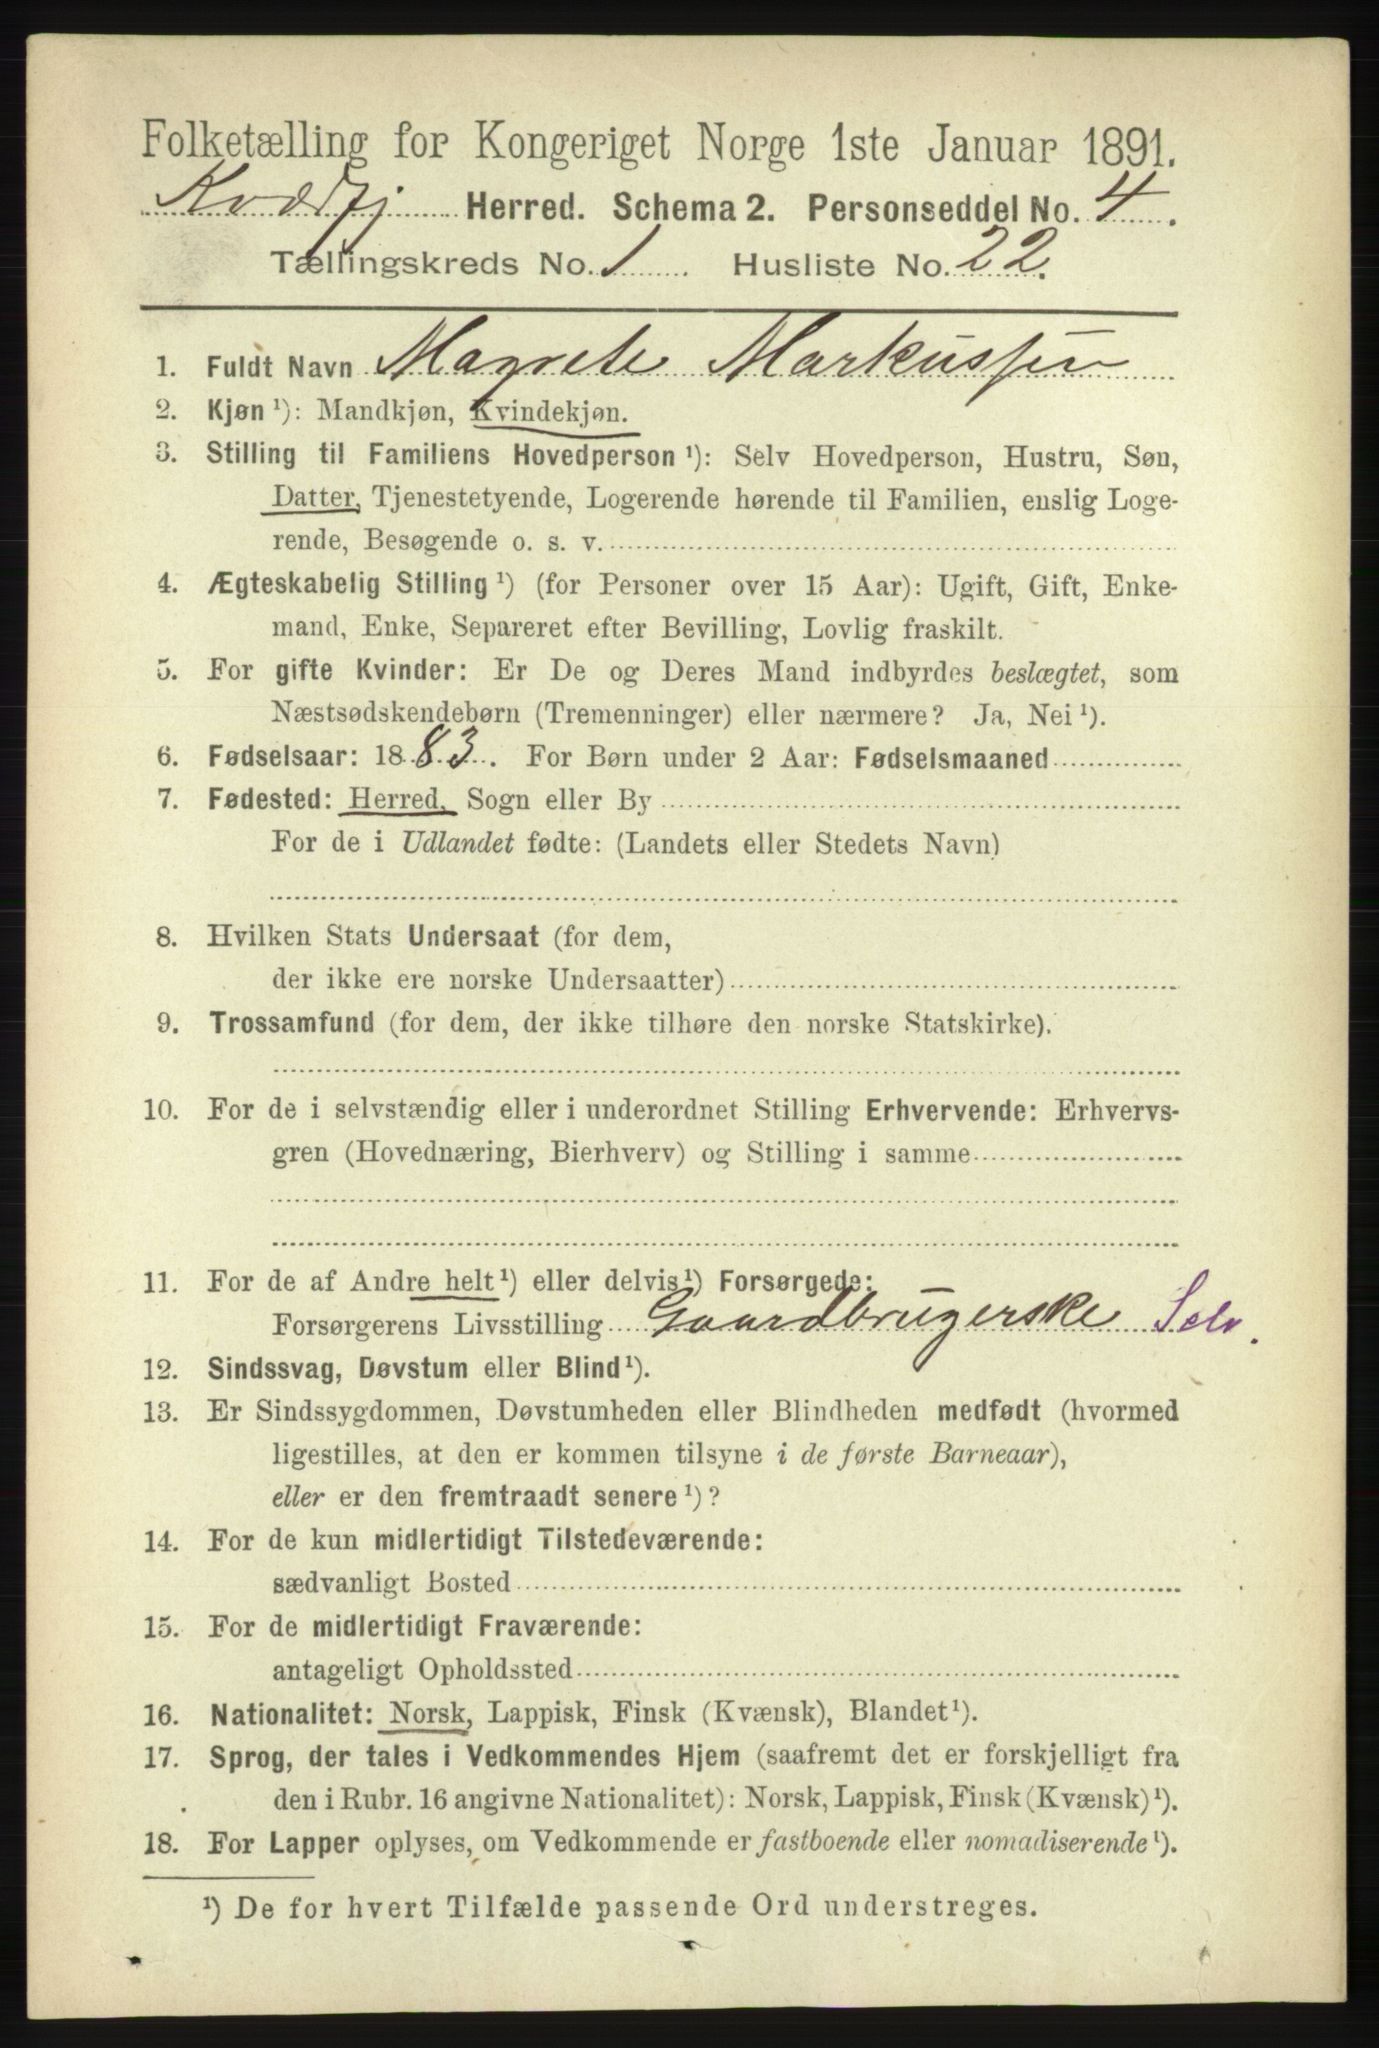 Folketælling for Kongeriget Norge 1ste Januar 1891.
Kvædfj Herred. Schema 2. Personseddel No. 4.
Tællingskreds No. 1 Husliste No. 22.
1. Fuldt Navn Magrete Markussen
2. Kjøn ¹): Mandkjøn, Kvindekjøn.
3. Stilling til Familiens Hovedperson ¹): Selv Hovedperson, Hustru, Søn,
Datter, Tjenestetyende, Logerende hørende til Familien, enslig Loge-
rende, Besøgende o. s. v.
4. Ægteskabelig Stilling ¹) (for Personer over 15 Aar): Ugift, Gift, Enke-
mand, Enke, Separeret efter Bevilling, Lovlig fraskilt.
5. For gifte Kvinder: Er De og Deres Mand indbyrdes beslægtet, som
Næstsødskendebørn (Tremenninger) eller nærmere? Ja, Nei ¹).
6. Fødselsaar: 1883. For Børn under 2 Aar: Fødselsmaaned
7. Fødested: Herred, Sogn eller By
For de i Udlandet fødte: (Landets eller Stedets Navn)
8. Hvilken Stats Undersaat (for dem,
der ikke ere norske Undersaatter)
9. Trossamfund (for dem, der ikke tilhøre den norske Statskirke).
10. For de i selvstændig eller i underordnet Stilling Erhvervende: Erhvervs-
gren (Hovednæring, Bierhverv) og Stilling i samme
11. For de af Andre helt ¹) eller delvis ¹) Forsørgede:
Forsørgerens Livsstilling Gaardbrugerske Selv.
12. Sindssvag, Døvstum eller Blind ¹).
13. Er Sindssygdommen, Døvstumheden eller Blindheden medfødt (hvormed
ligestilles, at den er kommen tilsyne i de første Barneaar),
eller er den fremtraadt senere ¹)?
14. For de kun midlertidigt Tilstedeværende:
sædvanligt Bosted
15. For de midlertidigt Fraværende:
antageligt Opholdssted
16. Nationalitet: Norsk, Lappisk, Finsk (Kvænsk), Blandet ¹).
17. Sprog, der tales i Vedkommendes Hjem (saafremt det er forskjelligt fra
den i Rubr. 16 angivne Nationalitet): Norsk, Lappisk, Finsk (Kvænsk) ¹).
18. For Lapper oplyses, om Vedkommende er fastboende eller nomadiserende ¹).
¹) De for hvert Tilfælde passende Ord understreges.